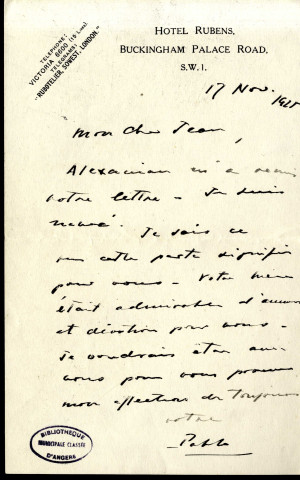 HOTEL RUBENS,
BUCKINGHAM PALACE ROAD,
S.W.1.
TELEPHONE:
VICTORIA 6600 (15 LINES)
TELEGRAMS:
"RUBOTELIER, SOWEST, LONDON."
17 Nov.
Mon cher Jean,
Alexanian m'a remis
votre lettre – Je suis
navré. Je sais ce
que cette perte signifie
pour vous – Votre mère
était admirable d'amour
et dévotion pour vous –
Je voudrais être avec
vous pour vous prouver
mon affection de toujours
votre
Pablo
BIBLIOTHÈQUE
MUNICIPALE CLASSÉE
D'ANGERS